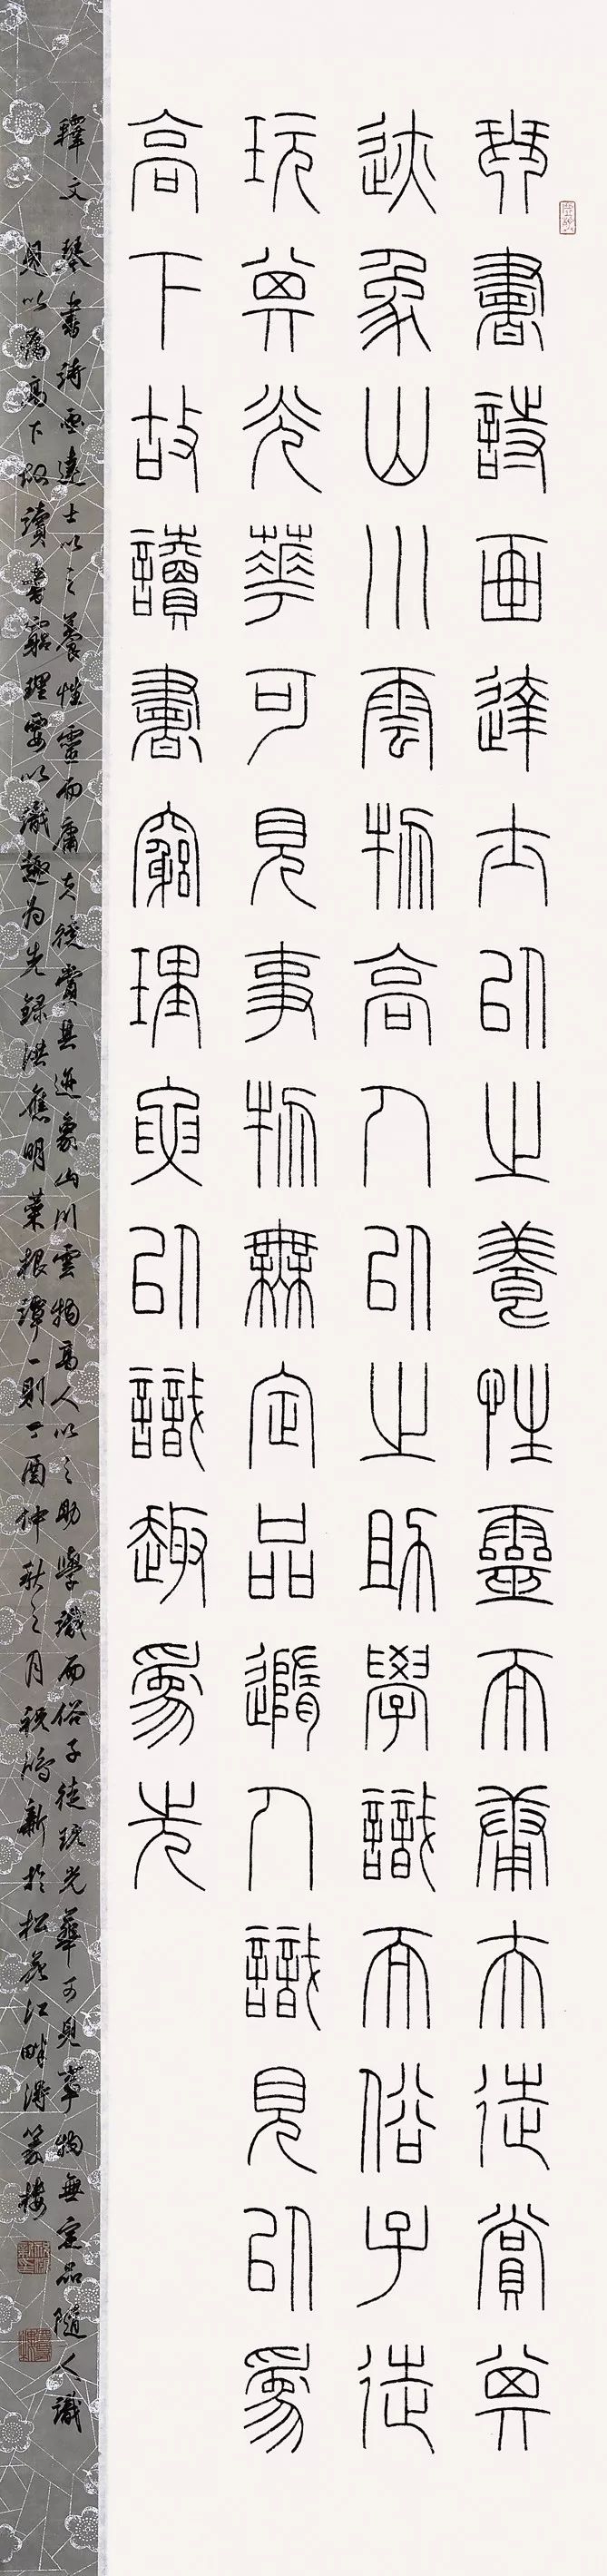 琴書詩畫達士以之養性靈而庸夫徒賞其
迹象山川雲物高人以之助學識而俗子徒
玩其光華可見事物無定品隨人識見以為
高下故讀書窮理要以識趣為先
釋文 琴書詩画達士以之養性靈而庸夫徒賞其迹象山川雲物高人以之助學識而俗子徒玩光華可見事物無定品隨人識
見以為高下故讀書窮理要以識趣為先錄洪應明菜根譚一則丁酉仲秋之月祝鴻新於松花江畔篆樓